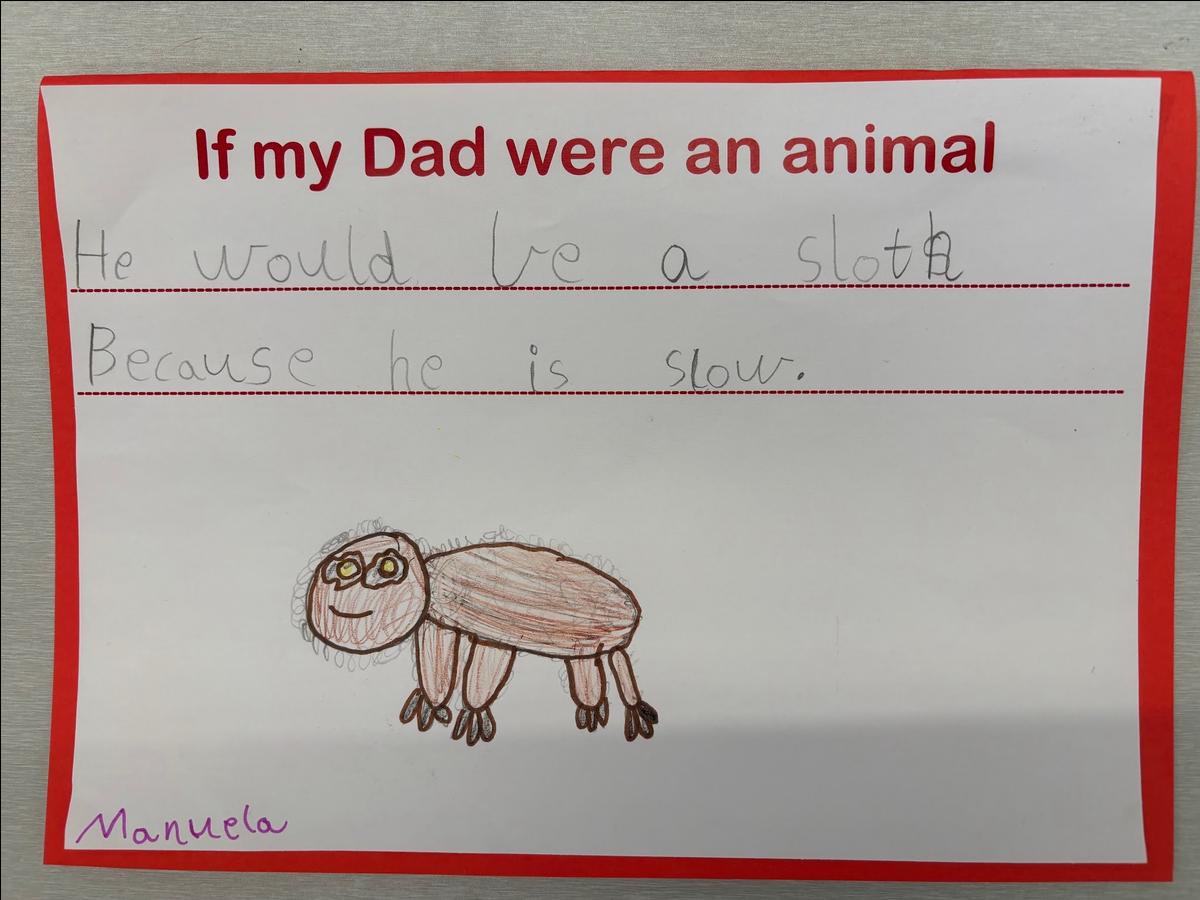 If my Dad were an animal
He would be a sloth
Because he is slow.
Manuela